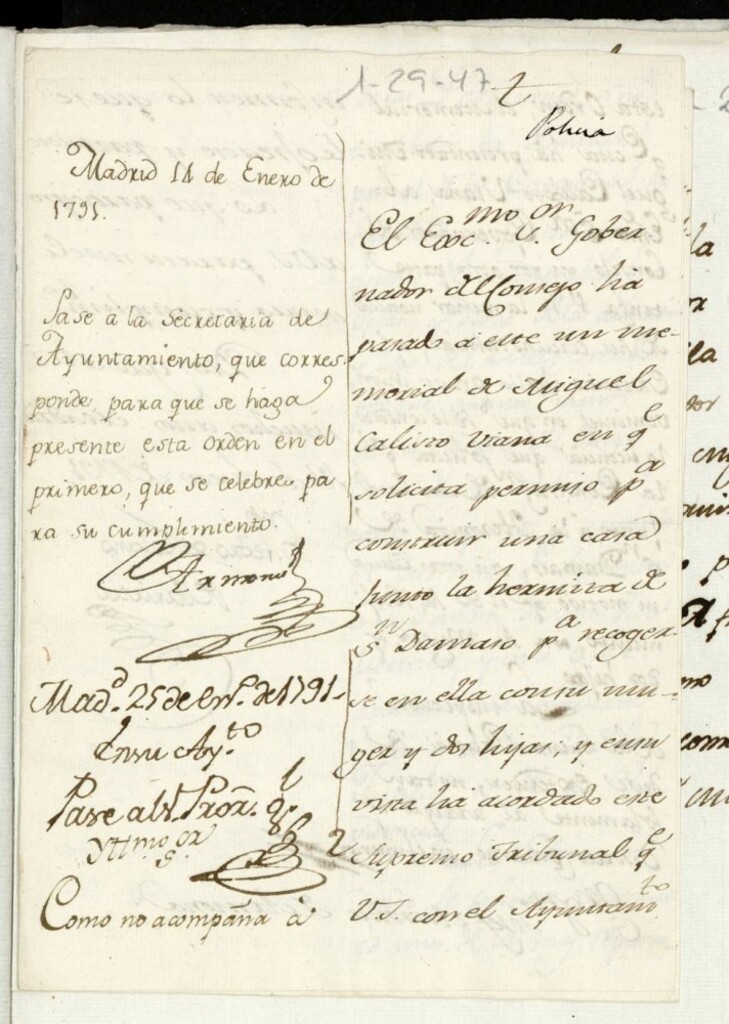 1-29-47
Policia
Madrid 14 de Enero de
1791.
Pase à la Secretaría de
Ayuntamiento, que corres-
ponde, para que se haga
presente esta Orden en el
primero, que se celebre, pa
ra su cumplimiento.
Armona
Mad.d 25 de en.o de 1791.
En su Ay.to
Pase al S.r Pror. g.l
Yttmo S.or
Como no acompaña à
El Exc.mo S.or Gober
nador del Consejo ha
pasado à este un me-
morial de Miguel
Calixto Viana en q.e
solicita permiso p.a
construir una casa
junto la hermita de
S.n Damaso p.a recoger-
se en ella con su mu-
ger y dos hijas, y en su
vista ha acordado este
Supremo Tribunal q.e
V.S. con el Ayuntam.to